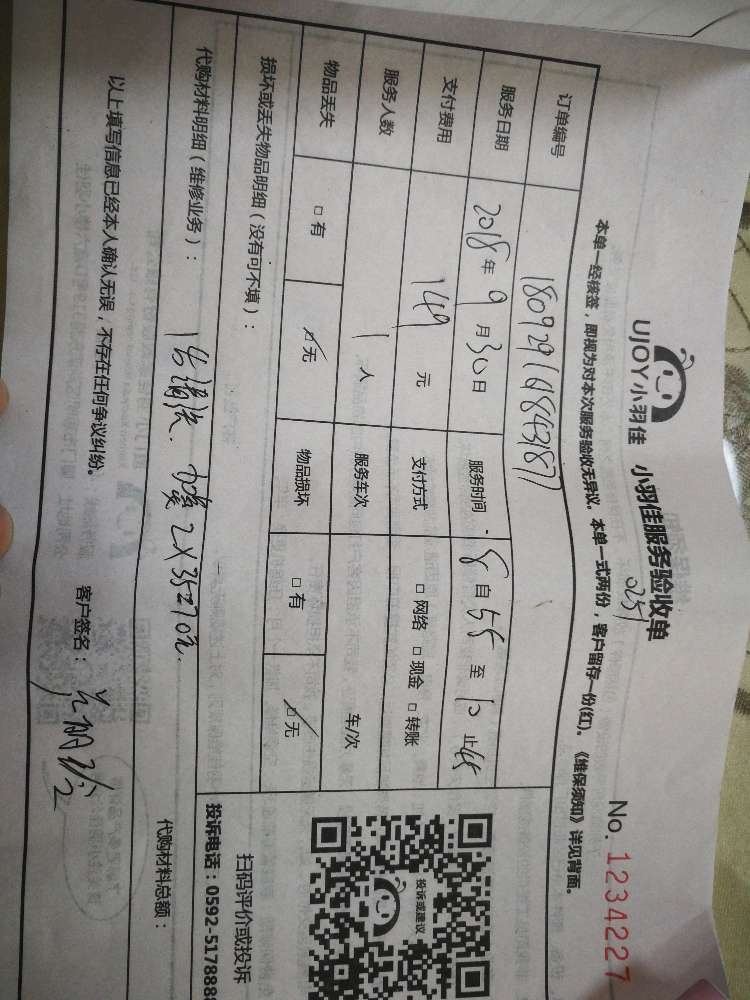 UJOY小羽佳 小羽佳服务验收单 No. 1234227
0251
本单一经核签，即视为对本次服务验收无异议。本单一式两份，客户留存一份(红)。《维保须知》详见背面。
订单编号 180929168843187
服务日期 2018年9月30日 服务时间 8自55至10止45
支付费用 149元 支付方式 □网络 □现金 □转账
服务人数 1人 服务车次 车/次
物品丢失 □有 □无 物品损坏 □有 □无
损坏或丢失物品明细（没有可不填）：
代购材料明细（维修业务）： 1台清洗. 2X35=70元. 代购材料总额：
以上填写信息已经本人确认无误，不存在任何争议纠纷。 客户签名：
投诉或建议
扫码评价或投诉
投诉电话：0592-5178888